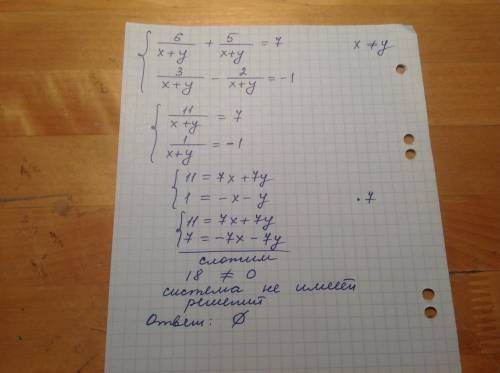 6/(x+y) + 5/(x+y) = 7 x≠y
3/(x+y) - 2/(x+y) = -1
11/(x+y) = 7
1/(x+y) = -1
11 = 7x+7y
1 = -x-y ·7
11 = 7x+7y
7 = -7x-7y
сложим
18 ≠ 0
система не имеет
решений
Ответ: ∅